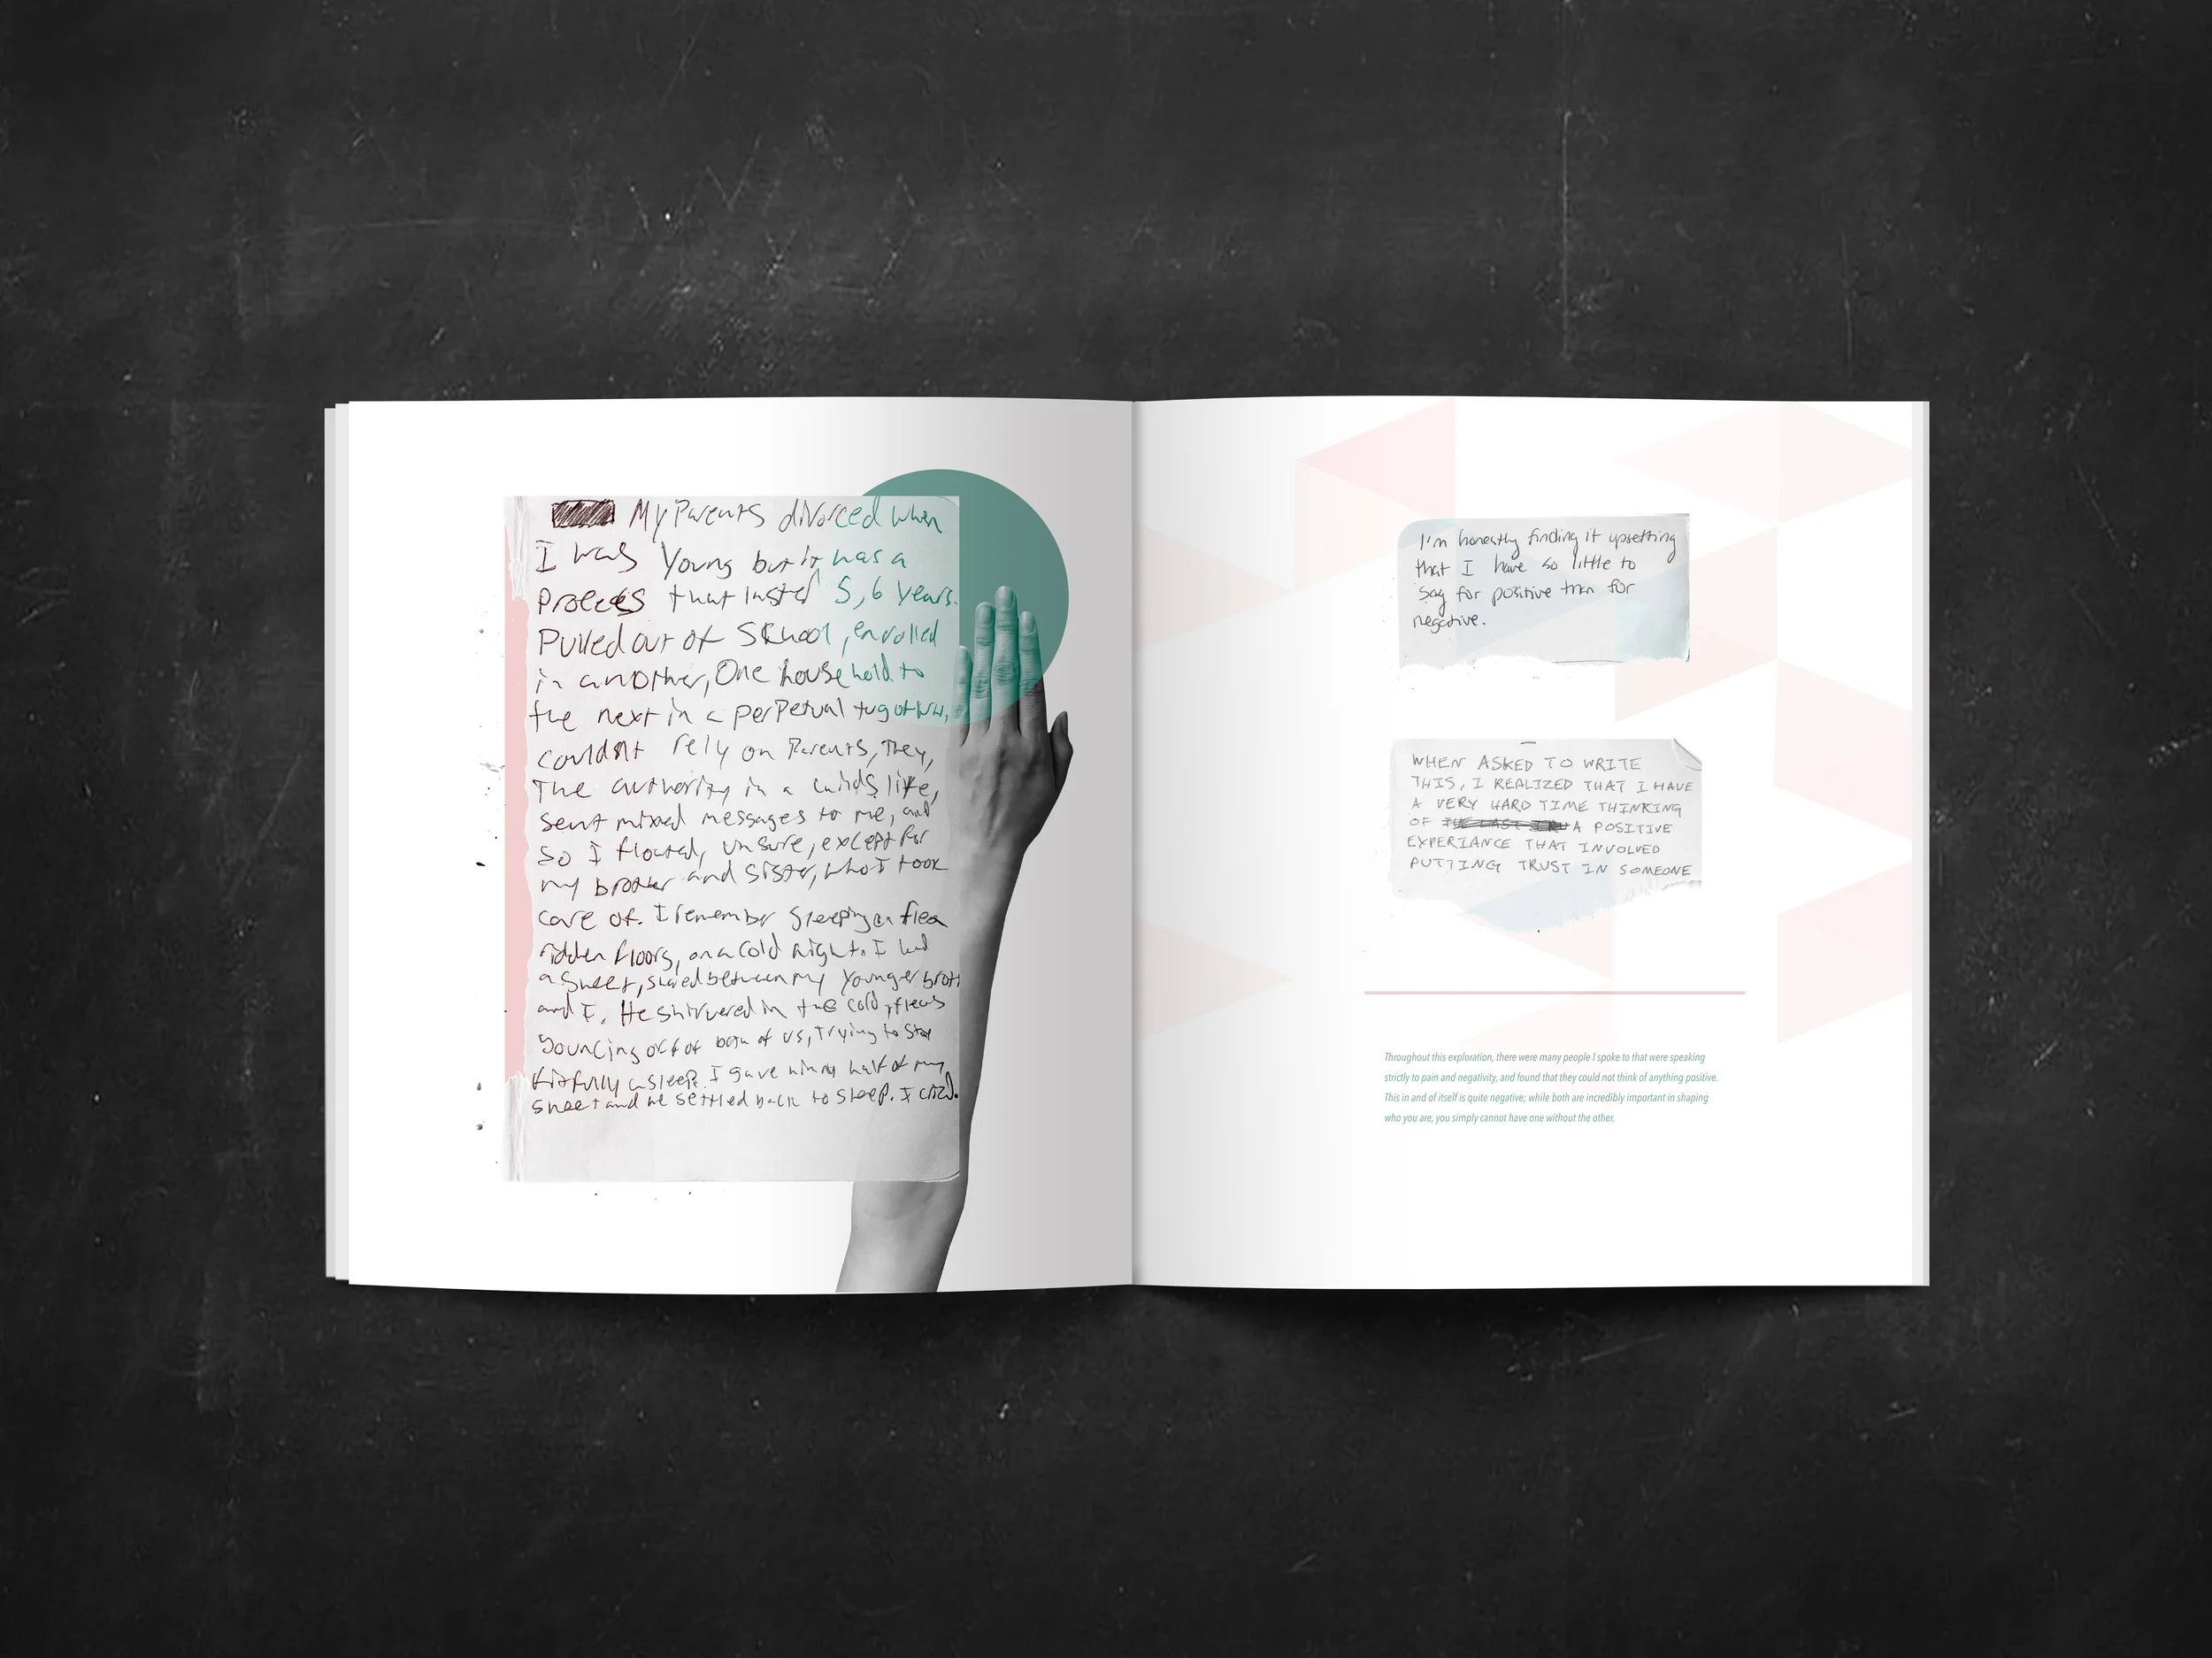 My Parents divorced when
I was Young but it was a
process that lasted 5,6 years.
Pulled out of School, enrolled
in another, One household to
the next in a perpetual tug of war,
couldnt rely on Parents, They,
The authority in a childs life,
sent mixed messages to me, and
so I floated, unsure, except for
my brother and sister, who I took
care of. I remember Sleeping on flea
ridden floors, on a cold night. I had
a sheet, shared between my younger broth
and I. He shivvered in the cold, fleas
bouncing off of both of us, trying to stay
fitfully asleep. I gave him my half of my
sheet and he settled back to sleep. I cried.
I'm honestly finding it upsetting
that I have so little to
say for positive than for
negative.
WHEN ASKED TO WRITE
THIS, I REALIZED THAT I HAVE
A VERY HARD TIME THINKING
OF A POSITIVE
EXPERIANCE THAT INVOLVED
PUTTING TRUST IN SOMEONE
Throughout this exploration, there were many people I spoke to that were speaking
strictly to pain and negativity, and found that they could not think of anything positive.
This in and of itself is quite negative; while both are incredibly important in shaping
who you are, you simply cannot have one without the other.